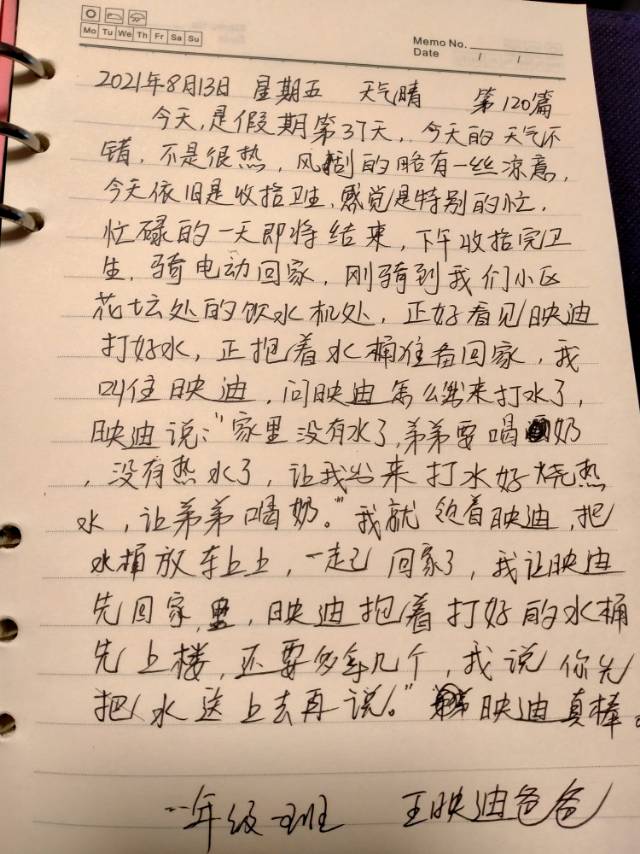 Mo Tu We Th Fr Sa Su
Memo No.
Date / /
2021年8月13日 星期五 天气晴 第120篇
今天,是假期第37天,今天的天气不
错,不是很热,风刮的略有一丝凉意,
今天依旧是收拾卫生,感觉是特别的忙,
忙碌的一天即将结束,下午收拾完卫
生,骑电动回家,刚骑到我们小区
花坛处的饮水机处,正好看见映迪
打好水,正抱着水桶准备回家,我
叫住映迪,问映迪怎么出来打水了,
映迪说:“家里没有水了,弟弟要喝奶
,没有热水了,让我出来打水好烧热
水,让弟弟喝奶。”我就领着映迪,把
水桶放车上上,一起 回家了,我让映迪
先回家里,映迪抱着打好的水桶
先上楼,还要多拿几个,我说你先
把水送上去再说。”映迪真棒。
一年级 班 王映迪爸爸